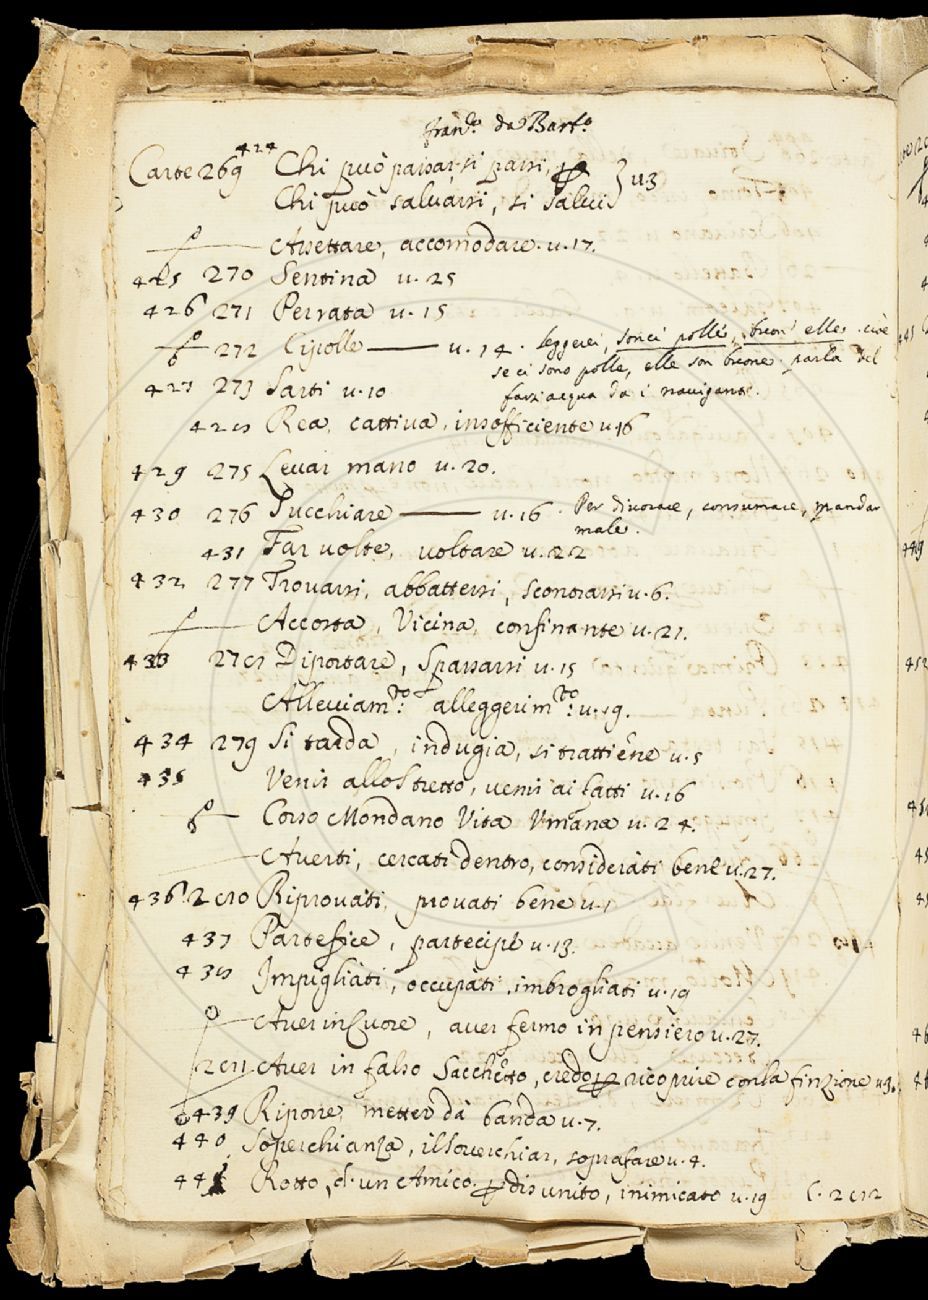 Fran.º da Barb.º
424
Carte 269 Chi può passar, si passi,
Chi può salvarsi, si salvi } u. 3
Assettare, accomodare. u. 17.
425 270 Sentina u. 25
426 271 Perrata u. 15
272 Cipolle — u. 14. leggerei, sonci polle, buon' elle. cioè
se ci sono polle, elle son buone. parla del
427 273 Sarti u. 10
farsi acqua da i naviganti.
428 Rea, cattiva, insofficiente u. 16
429 275 Levar mano u. 20.
430 276 Pucchiare — u. 16. Per divorare, consumare, mandar
male.
431 Far volte, voltare u. 22
432 277 Trovarsi, abbattersi, scontrarsi u. 6.
Accosta, Vicina, confinante u. 21.
433 278 Diportare, Spassarsi u. 15
Alleviam.to alleggerim.to u. 19.
434 279 Si tarda, indugia, si trattiene u. 5
435 Venir allo Stretto, venir ai fatti u. 16
Corso Mondano Vita Umana u. 24.
Averti, cercati dentro, considerati bene u. 27.
436 280 Riprovati, provati bene u. 1
437 Partefice, partecipe u. 13.
438 Impigliati, occupati, imbrogliati u. 19
Aver in Cuore, aver fermo in pensiero u. 27.
281 Aver in falso Sacchetto, credo ricoprire con la finzione u. 3.
439 Riporre, metter da banda u. 7.
440 Soperchianza, il soverchiar, soprafare u. 4.
441 Rotto, d. un Amico. disunito, inimicato u. 19 C. 282